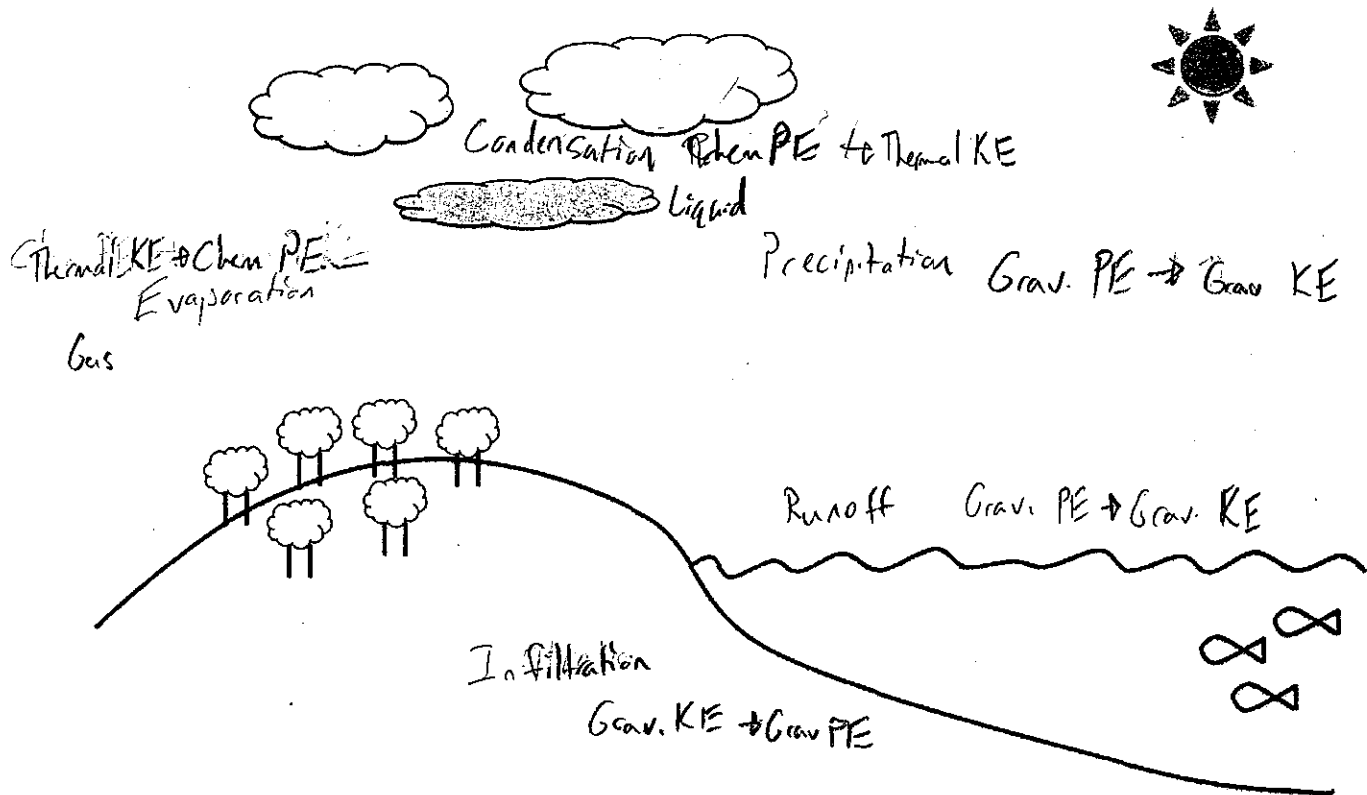 Condensation Chem PE → Thermal KE
Liquid
Thermal KE → Chem PE
Evaporation
Gas
Precipitation Grav. PE → Grav KE
Runoff Grav. PE → Grav. KE
Infiltration
Grav. KE → Grav PE